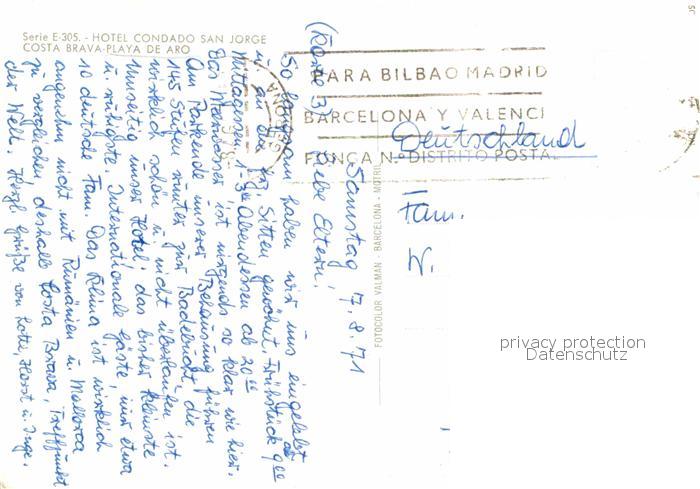 Serie E-305. - HOTEL CONDADO SAN JORGE
COSTA BRAVA-PLAYA DE ARO
PARA BILBAO MADRID
BARCELONA Y VALENCI
PONGA N.º DISTRITO POSTA
Deutschland
Fam.
W.
FOTOCOLOR VALMAN - BARCELONA - MOTRI
privacy protection
Datenschutz
(Karte 3) Samstag 7.8.71
Liebe Eltern!
So langsam haben wir uns eingelebt
u. an die frz. Sitten gewöhnt. Frühstück ab 9⁰⁰
Mittagessen 1³⁰ Abendessen ab 20⁰⁰
Das Meerwasser ist nirgends so klar wie hier.
Am Parkende unserer Behausung führen
145 Stufen runter zur Badebucht, die
wirklich schön u. nicht überlaufen ist.
Umseitig unser Hotel: das bisher kleinste
u. ruhigste. Internationale Gäste, nur etwa
10 deutsche Fam. Das Klima ist wirklich
angenehm nicht mit Rumänien u. Mallorca
zu vergleichen, deshalb Costa Brava, Treffpunkt
der Welt. Herzl. Grüße von Lotte, Horst u. Inge.